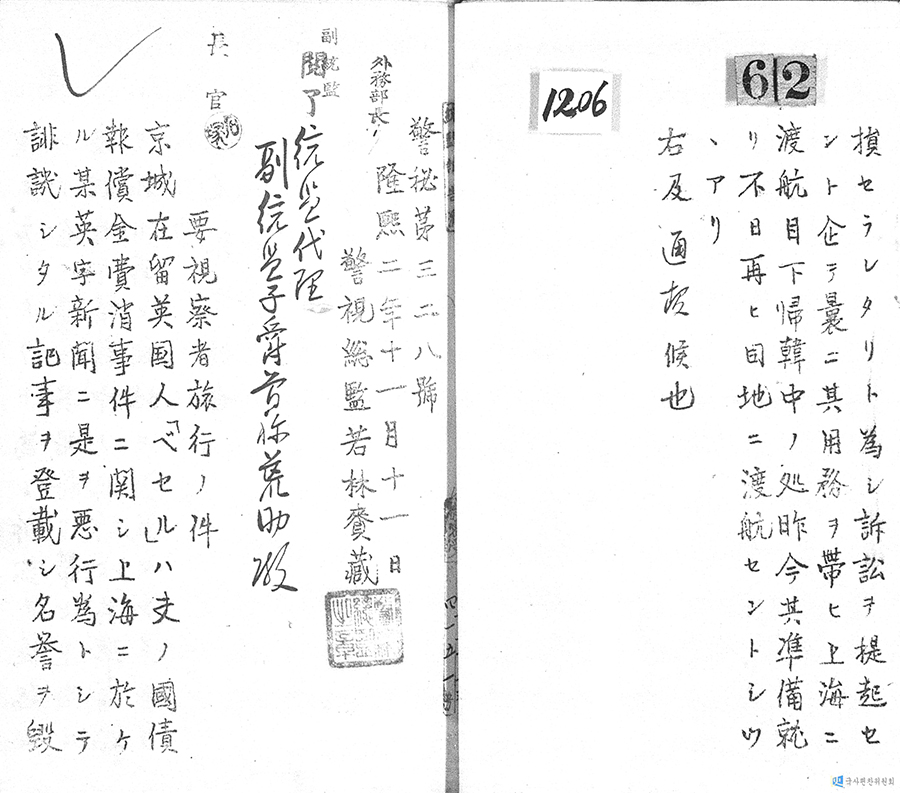 警秘第三二八號
隆熙二年十一月十一日
警視総監若林賚藏
外務部長
副統監
閲了
統監代理
副統監子爵曽祢荒助殿
長官
要視察者旅行ノ件
京城在留英国人「ベセル」ハ夫ノ國債
報償金費消事件ニ関シ上海ニ於ケ
ル某英字新聞ニ是ヲ悪行為トシテ
誹譏シタル記事ヲ登載シ名誉ヲ毀
62
1206
損セラレタリト為シ訴訟ヲ提起セ
ント企テ曩ニ其用務ヲ帶ヒ上海ニ
渡航目下帰韓中ノ処昨今其準備就
リ不日再ヒ同地ニ渡航セントシツ
ヽアリ
右及通報候也
국사편찬위원회